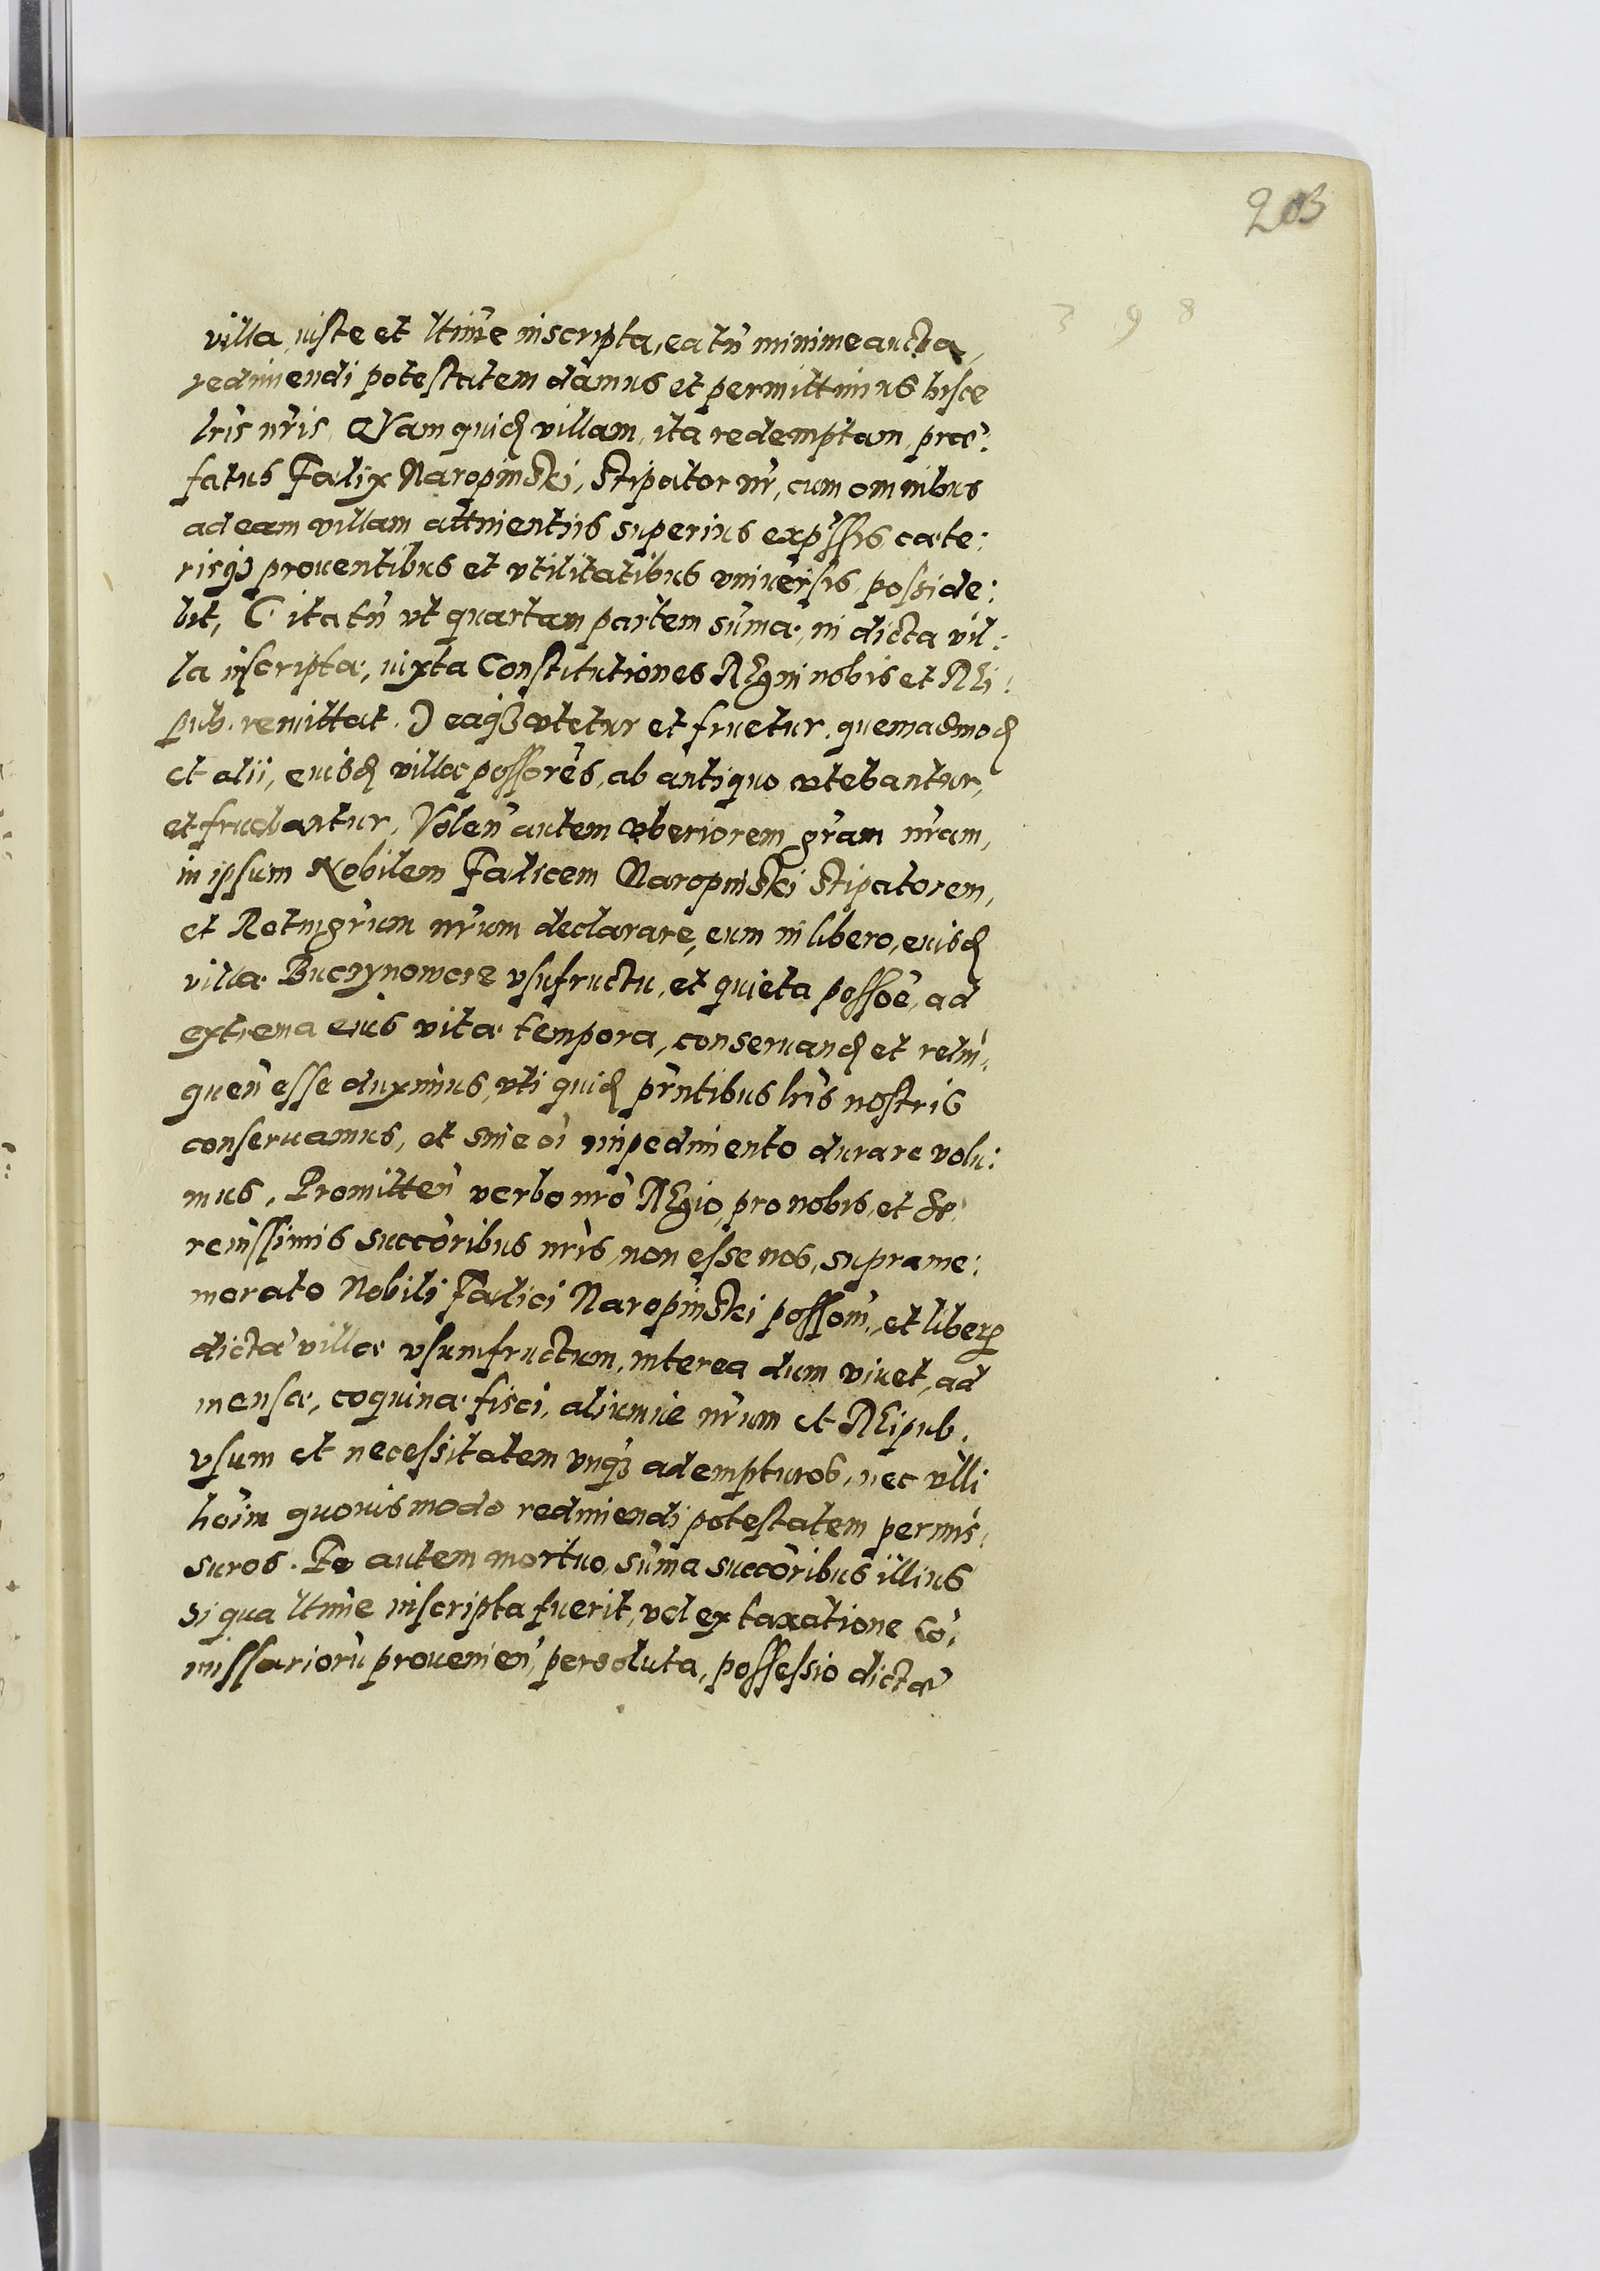 203
398
villa iuste et ltime inscripta, ea tñ minime aucta,
redimendi potestatem damus et permittimus hisce
lris nris. Quam quid villam, ita redemptam, præ:
fatus Fælix Naropinski, Stipator nr, cum omnibus
ad eam villam attinentiis superius expssis cæte:
risq3 prouentibus et vtilitatibus vniuersis posside:
bit, C ita tñ vt quartam partem sumæ, in dicta vil:
la inscriptæ, iuxta Constitutiones Regni nobis et Rei:
pub. remittat. Ɔ eaq3 vtetur et fruetur, quemadmod
et alii, eiusd villæ possores, ab antiquo vtebantur,
et fruebantur, Volen autem vberiorem gram nram,
in ipsum Nobilem Fælicem Naropinski Stipatorem,
et Rotmgrum nrum declarare, eum in libero, eiusd
villæ Buczynowcze vsufructu, et quieta possoe, ad
extrema eius vitæ tempora, conseruand et relin:
quen esse duximus, vti quid pntibus lris nostris
conseruamus, et sine oi impedimento durare volu:
mus, Promitten verbo nro Regio, pro nobis, et Se:
renissimis succoribus nris, non esse nos, suprame:
morato Nobili Fælici Naropinski possom, et liberu
dictæ villæ vsumfructum, interea dum viuet, ad
mensæ, coquinæ fisci, aliumue nrum et Reipub.
vsum et necessitatem vnq3 adempturos, nec vlli
hoim quouismodo redimendi potestatem permis:
suros. Eo autem mortuo, suma succoribus illius
si qua ltime inscripta fuerit, vel ex taxatione Co:
missarioru prouenien, persoluta, possessio dictæ